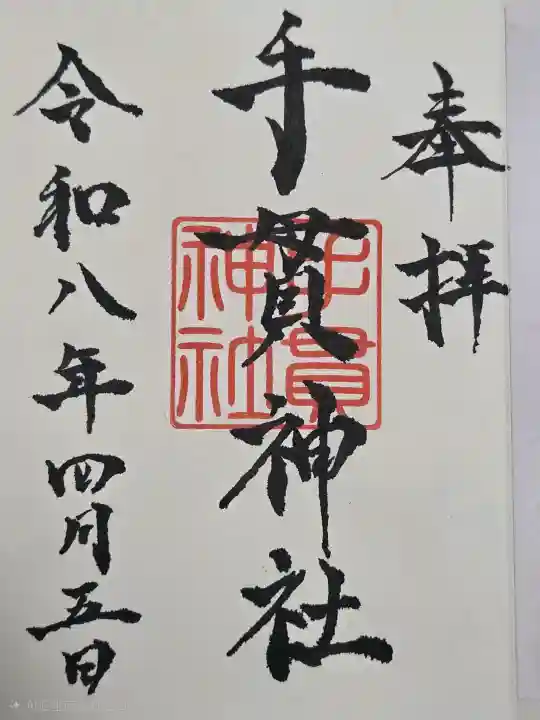 奉拝
千貫神社
千貫
神社
令和八年四月五日